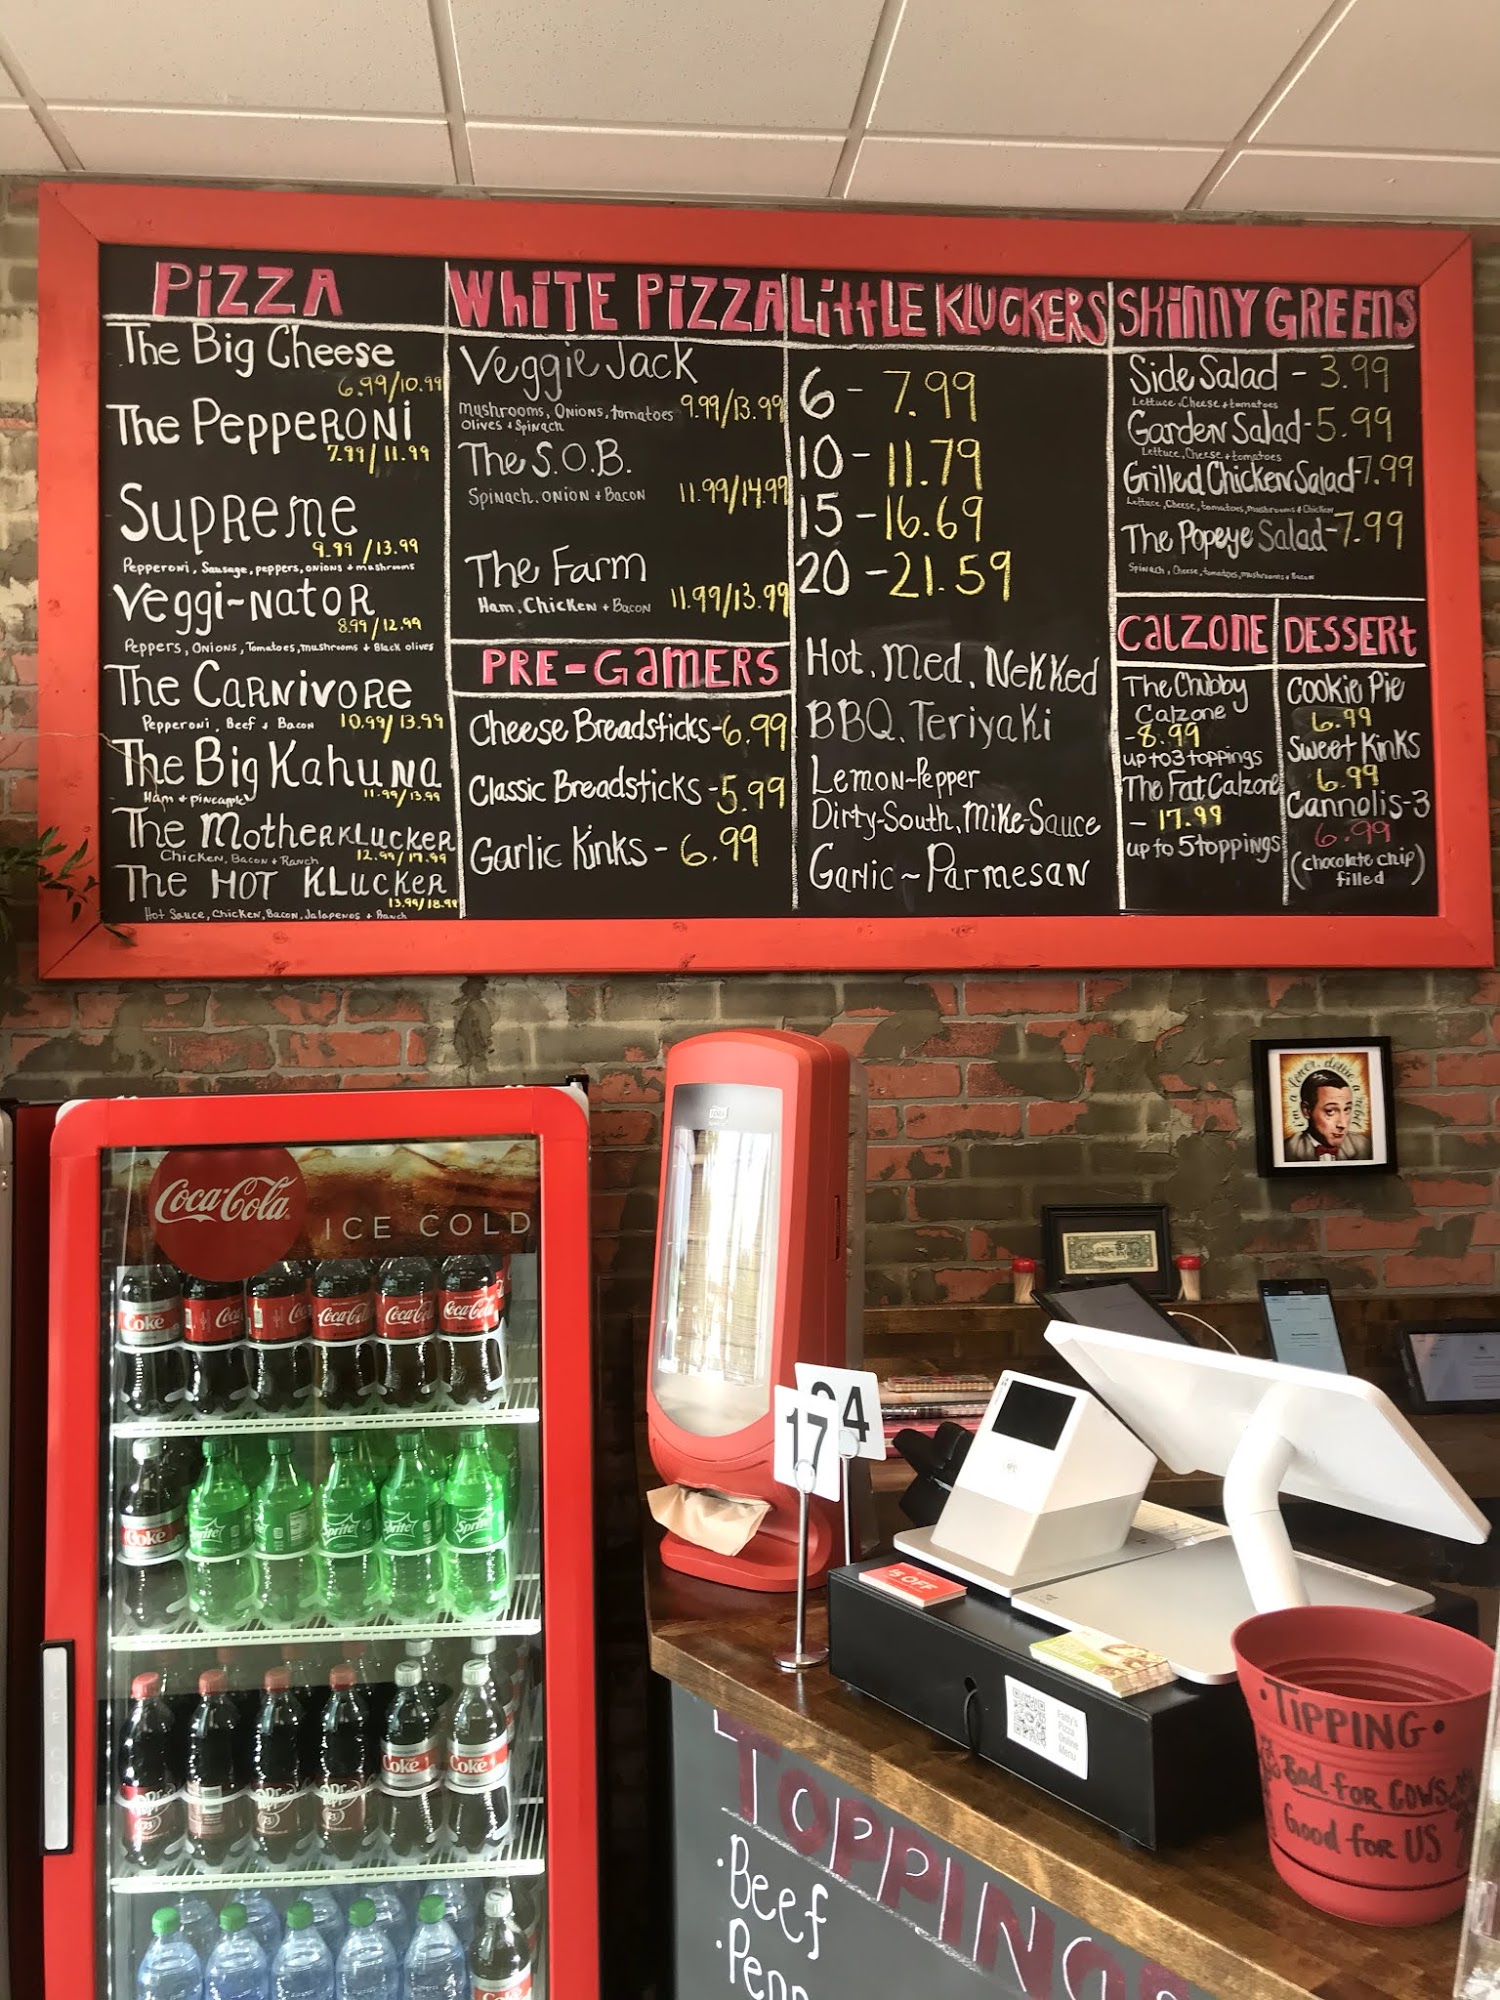 PiZZA
The Big Cheese
6.99/10.99
The PeppeRONi
7.99/11.99
SupReme
9.99/13.99
Pepperoni, Sausage, peppers, onions + mushrooms
Veggi-NATOR
8.99/12.99
Peppers, Onions, Tomatoes, mushrooms + Black olives
The CARNivORe
Pepperoni, Beef + Bacon 10.99/13.99
The Big KahuNa
Ham + pineapple 11.99/13.99
The MotheRKLucKeR
Chicken, Bacon + Ranch 12.99/17.99
The HOT KLucKeR
13.99/18.99
Hot Sauce, Chicken, Bacon, Jalapenos + Ranch
WhiTE PiZZA
Veggie Jack
Mushrooms, Onions, tomatoes 9.99/13.99
Olives + Spinach
The S.O.B.
Spinach, Onion + Bacon 11.99/14.99
The Farm
Ham, Chicken + Bacon 11.99/13.99
PRE-GaMERS
Cheese Breadsticks-6.99
Classic Breadsticks-5.99
Garlic Kinks-6.99
LittLE KLUCKERS
6-7.99
10-11.79
15-16.69
20-21.59
Hot, Med, Nekked
BBQ, Teriyaki
Lemon-Pepper
Dirty-South, Mike-Sauce
Garlic-Parmesan
SKiNNY GREENS
Side Salad - 3.99
Lettuce, Cheese + tomatoes
Garden Salad-5.99
Lettuce, Cheese + tomatoes
Grilled Chicken Salad-7.99
Lettuce, Cheese, tomatoes, mushrooms + Chicken
The Popeye Salad-7.99
Spinach, Cheese, tomatoes, mushrooms + Bacon
CaLZONE
The Chubby
Calzone
-8.99
up to 3 toppings
The Fat Calzone
- 17.99
up to 5 toppings
DESSERt
Cookie Pie
6.99
Sweet Kinks
6.99
Cannolis-3
6.99
(chocolate chip
filled)
i'm a loner, dottie, a rebel
Coca-Cola
ICE COLD
Coke
Coca-Cola
Coca-Cola
Coca-Cola
Coke
Sprite
Sprite
Sprite
Coke
Coke
24
17
$5 OFF
Fatty's
Pizza
Online
Menu
•TIPPING•
Bad for COWS
Good for US
TOPPING
•Beef
•Pepp